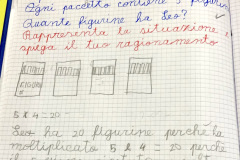 Ogni pacchetto contiene 5 figurin
Quante figurine ha Leo?
Rappresenta la situazione e
spiega il tuo ragionamento
5 x 4 = 20
Leo ha 20 figurine perché ha
moltiplicato 5 x 4 = 20 perché